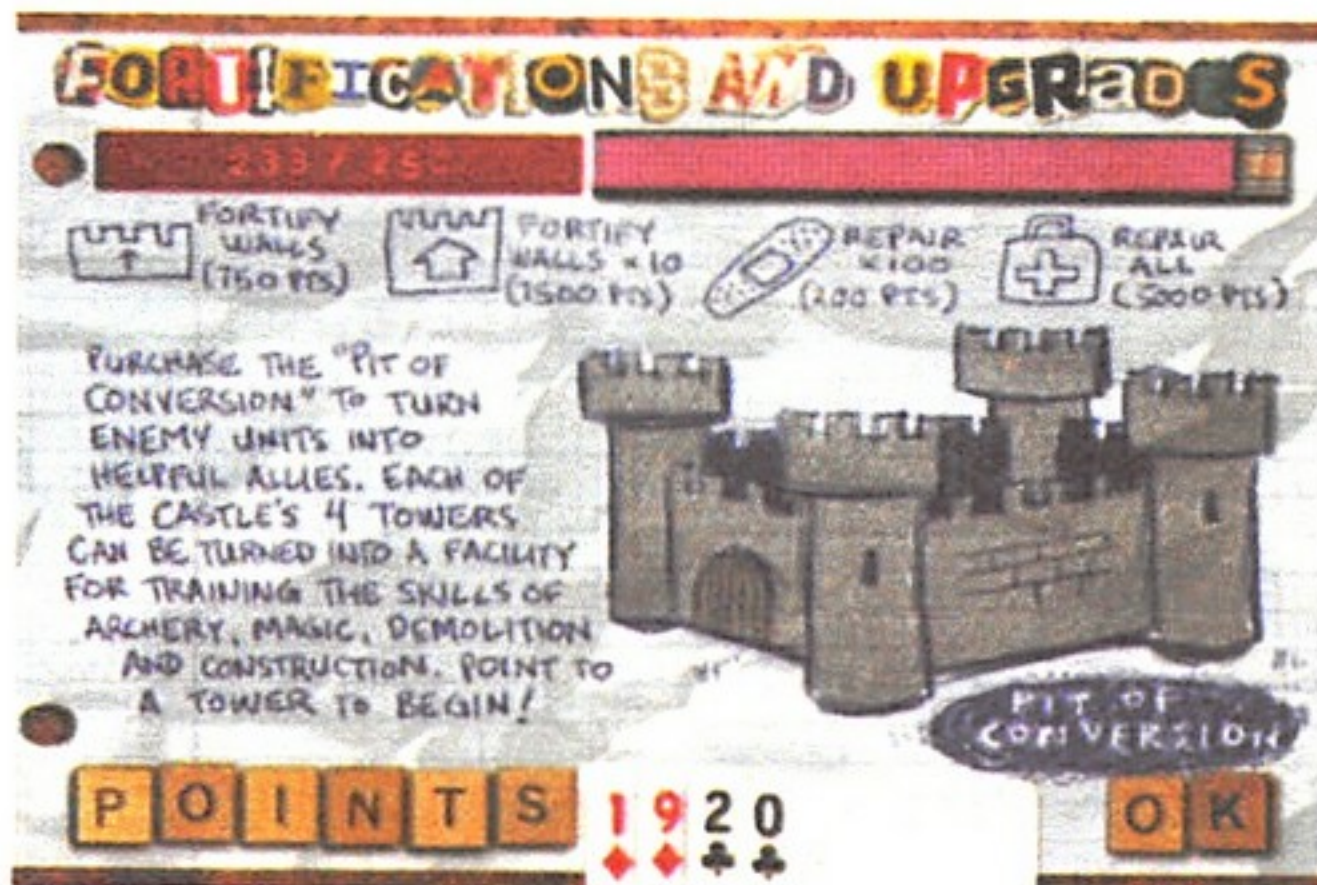 FORTIFICATIONS AND UPGRADES
FORTIFY
WALLS
(750 PTS)
FORTIFY
WALLS x 10
REPAIR
x100
(200 PTS)
REPAIR
ALL
(5000 PTS)
PURCHASE THE "PIT OF
CONVERSION" TO TURN
ENEMY UNITS INTO
HELPFUL ALLIES. EACH OF
THE CASTLE'S 4 TOWERS
CAN BE TURNED INTO A FACILITY
FOR TRAINING THE SKILLS OF
ARCHERY, MAGIC, DEMOLITION
AND CONSTRUCTION. POINT TO
A TOWER TO BEGIN!
PIT OF
CONVERSION
POINTS 1920
OK